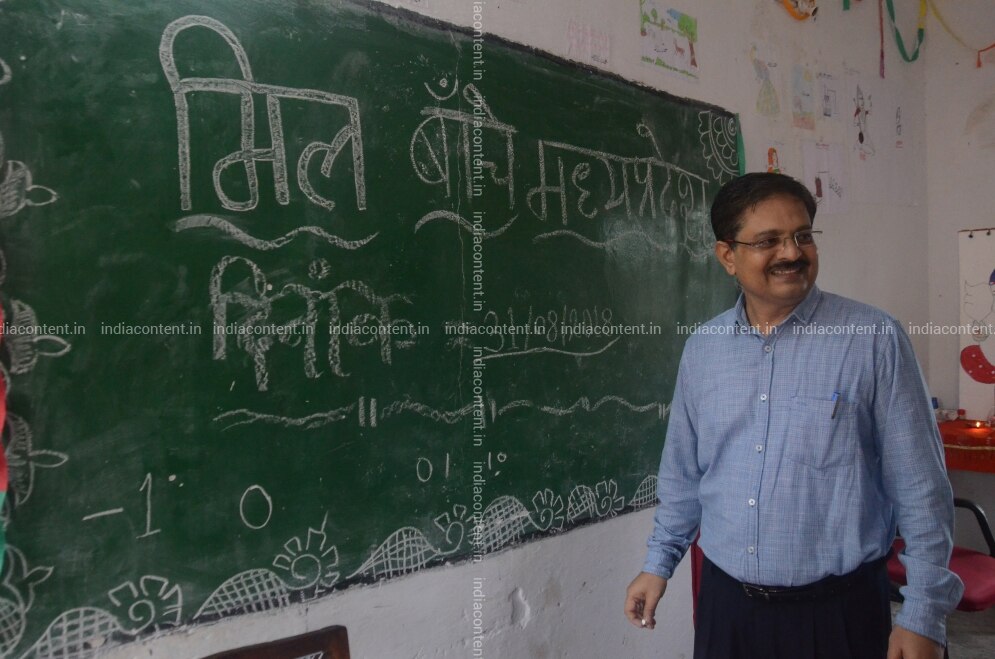 मिल बाँचे मध्यप्रदेश
दिनांक = 31/08/2018
-1 0 01 1
indiacontent.in indiacontent.in indiacontent.in indiacontent.in indiacontent.in indiacontent.in indiacontent.in indiacontent.in indiacontent.in
indiacontent.in indiacontent.in indiacontent.in indiacontent.in indiacontent.in indiacontent.in